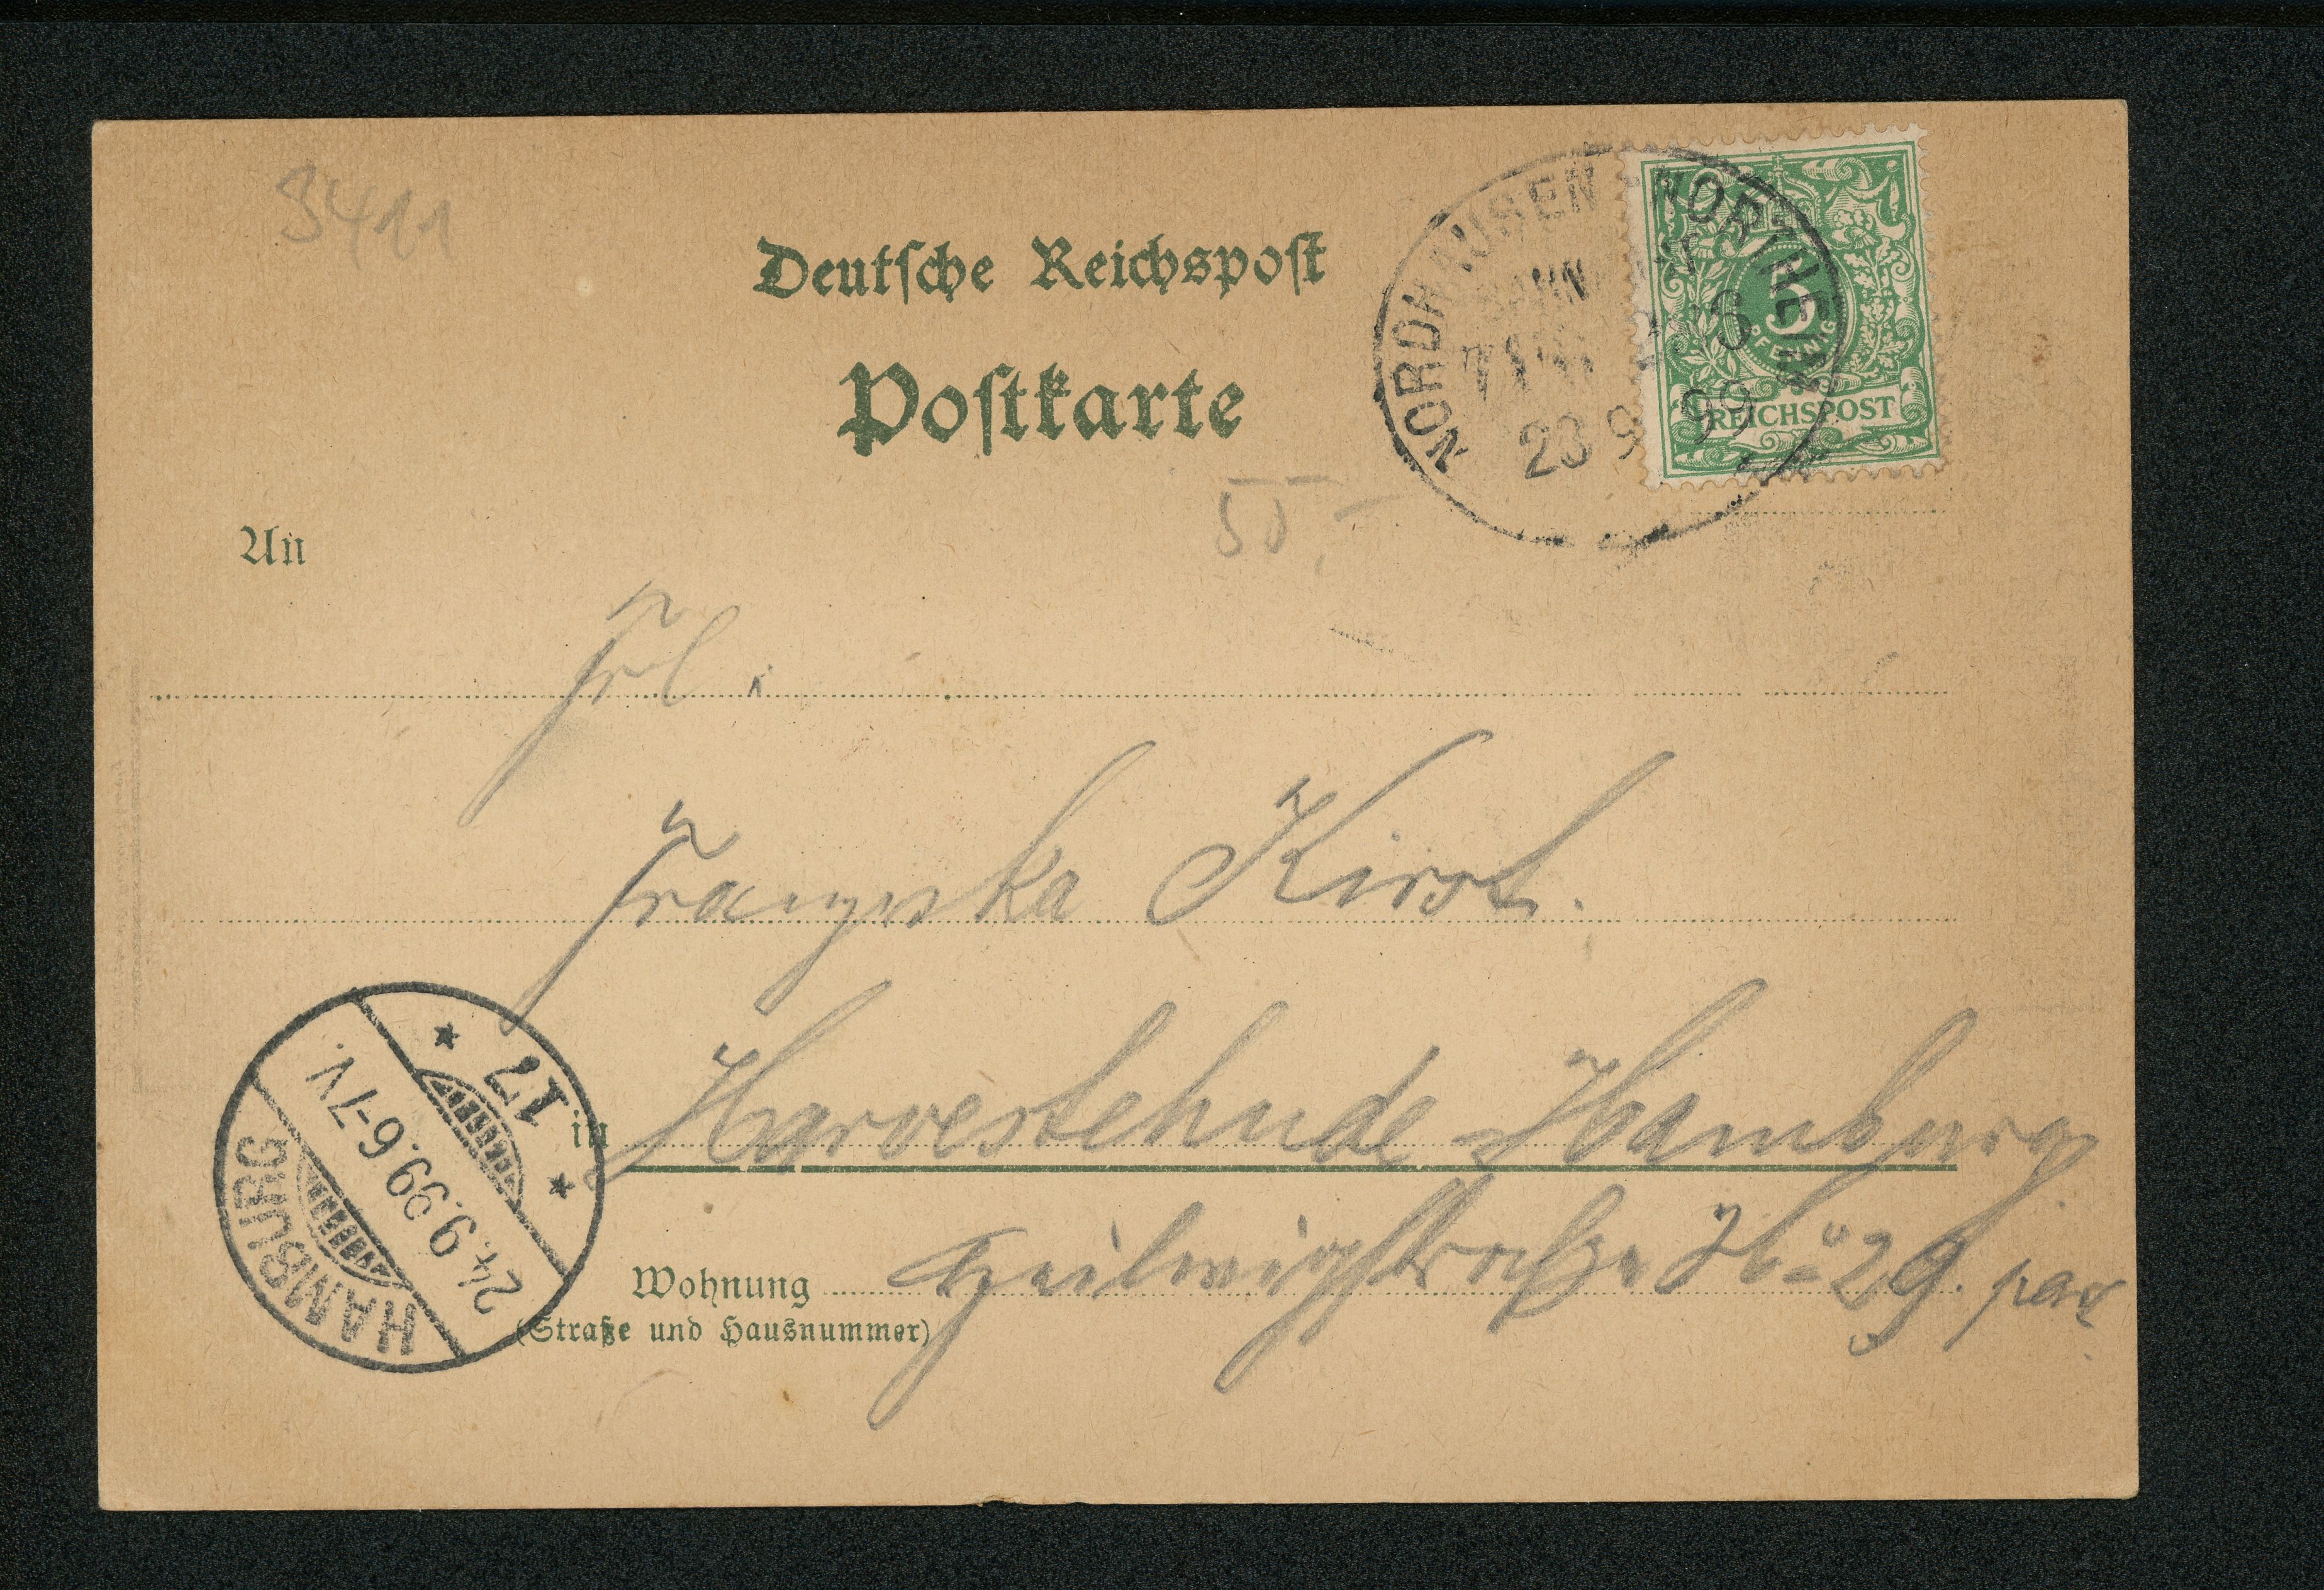 3411
Deutsche Reichspost
Postkarte
NORDHAUSEN - NORTHEIM
BAHNPOST
ZUG
23 9 99
5
PFENNIG
REICHSPOST
50,-
An
Frl.
Franziska Kirst.
in Harvestehude - Hamburg
Wohnung Heilwigstraße No 29. par
(Straße und Hausnummer)
HAMBURG
24.9.99.6-7V.
* 17 *